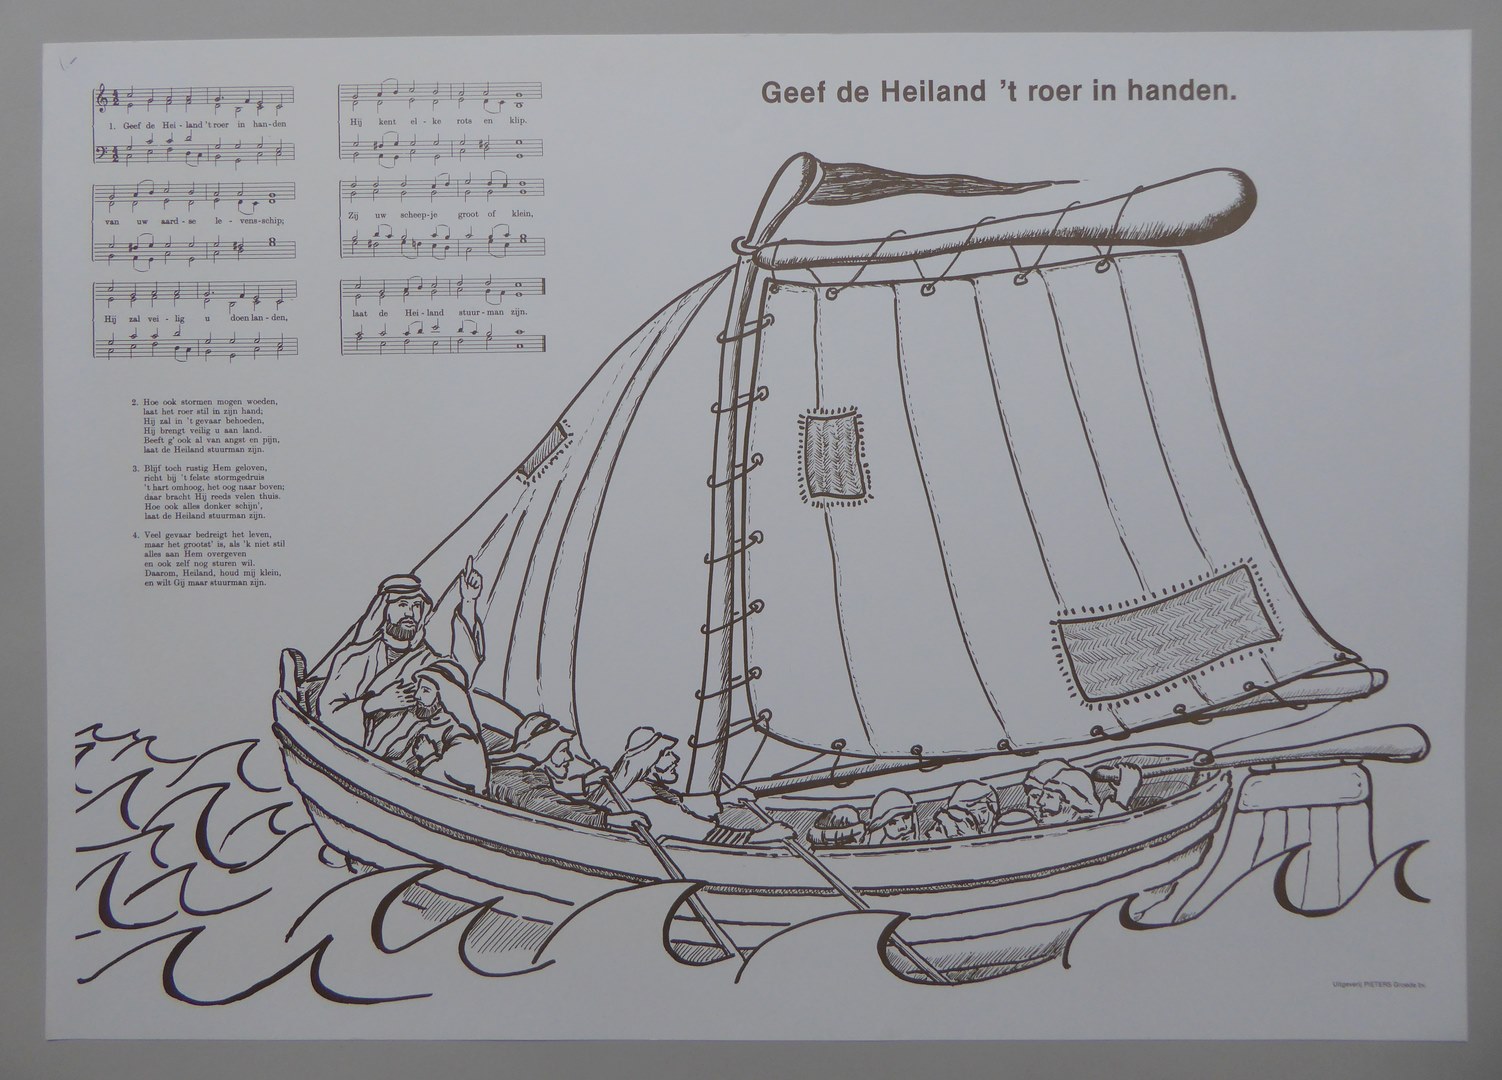 Geef de Heiland 't roer in handen.
1. Geef de Hei - land 't roer in han - den
van uw aard - se le - vens-schip;
Hij zal vei - lig u doen lan - den,
Hij kent el - ke rots en klip.
Zij uw scheep-je groot of klein,
laat de Hei - land stuur - man zijn.
2. Hoe ook stormen mogen woeden,
laat het roer stil in zijn hand;
Hij zal in 't gevaar behoeden,
Hij brengt veilig u aan land.
Beeft g' ook al van angst en pijn,
laat de Heiland stuurman zijn.
3. Blijf toch rustig Hem geloven,
richt bij 't felste stormgedruis
't hart omhoog, het oog naar boven;
daar bracht Hij reeds velen thuis.
Hoe ook alles donker schijn',
laat de Heiland stuurman zijn.
4. Veel gevaar bedreigt het leven,
maar het grootst' is, als 'k niet stil
alles aan Hem overgeven
en ook zelf nog sturen wil.
Daarom, Heiland, houd mij klein,
en wilt Gij maar stuurman zijn.
Uitgeverij PIETERS Groede